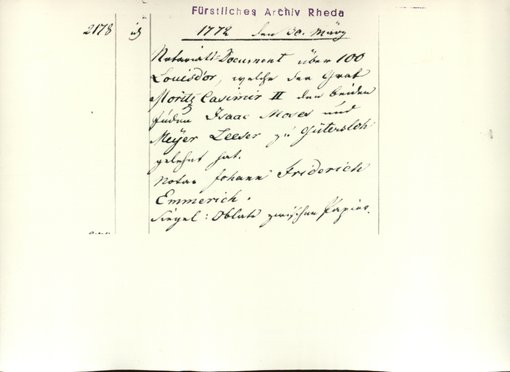 Fürstliches Archiv Rheda
2178
1772 den 30. März
Notariats-Document über 100
Louisdor, welche der Graf
Moritz Casimir II den beiden
Juden Isaac Moses und
Meyer Leeser zu Gütersloh
gelehnt hat.
Notar Johann Friderich
Emmerich.
Siegel: Oblate zwischen Papier.